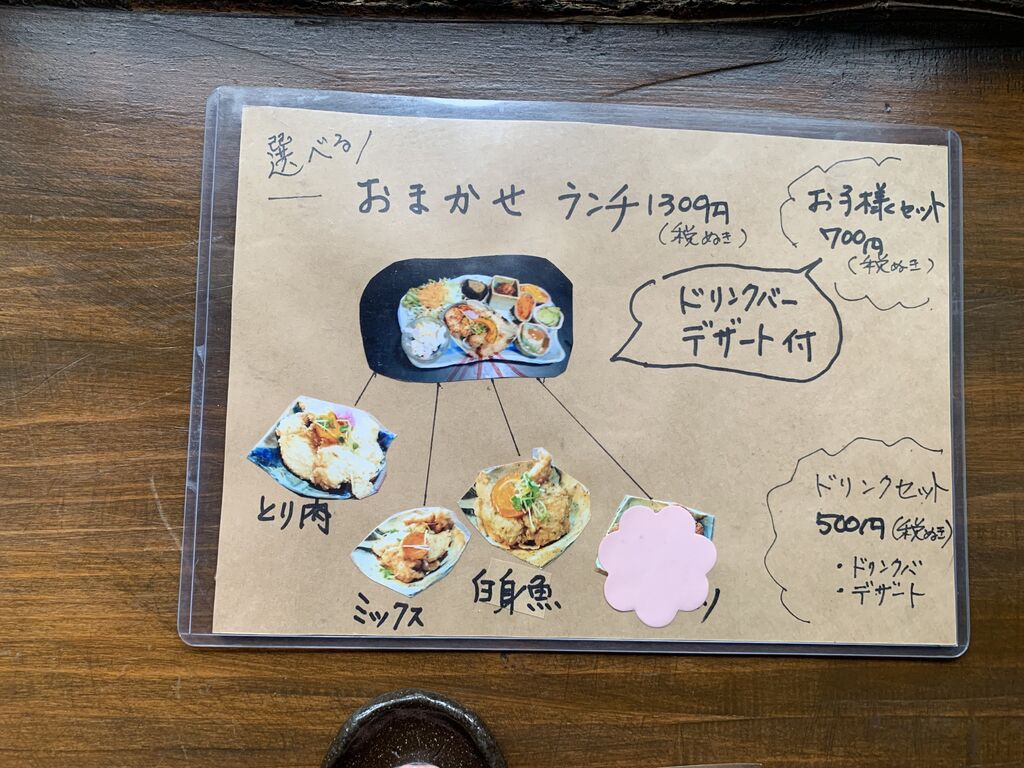 選べる!
おまかせ ランチ 1309円
(税ぬき)
お子様セット
700円
(税ぬき)
ドリンクバー
デザート付
とり肉
ミックス
白身魚
ドリンクセット
500円(税ぬき)
・ドリンクバー
・デザート